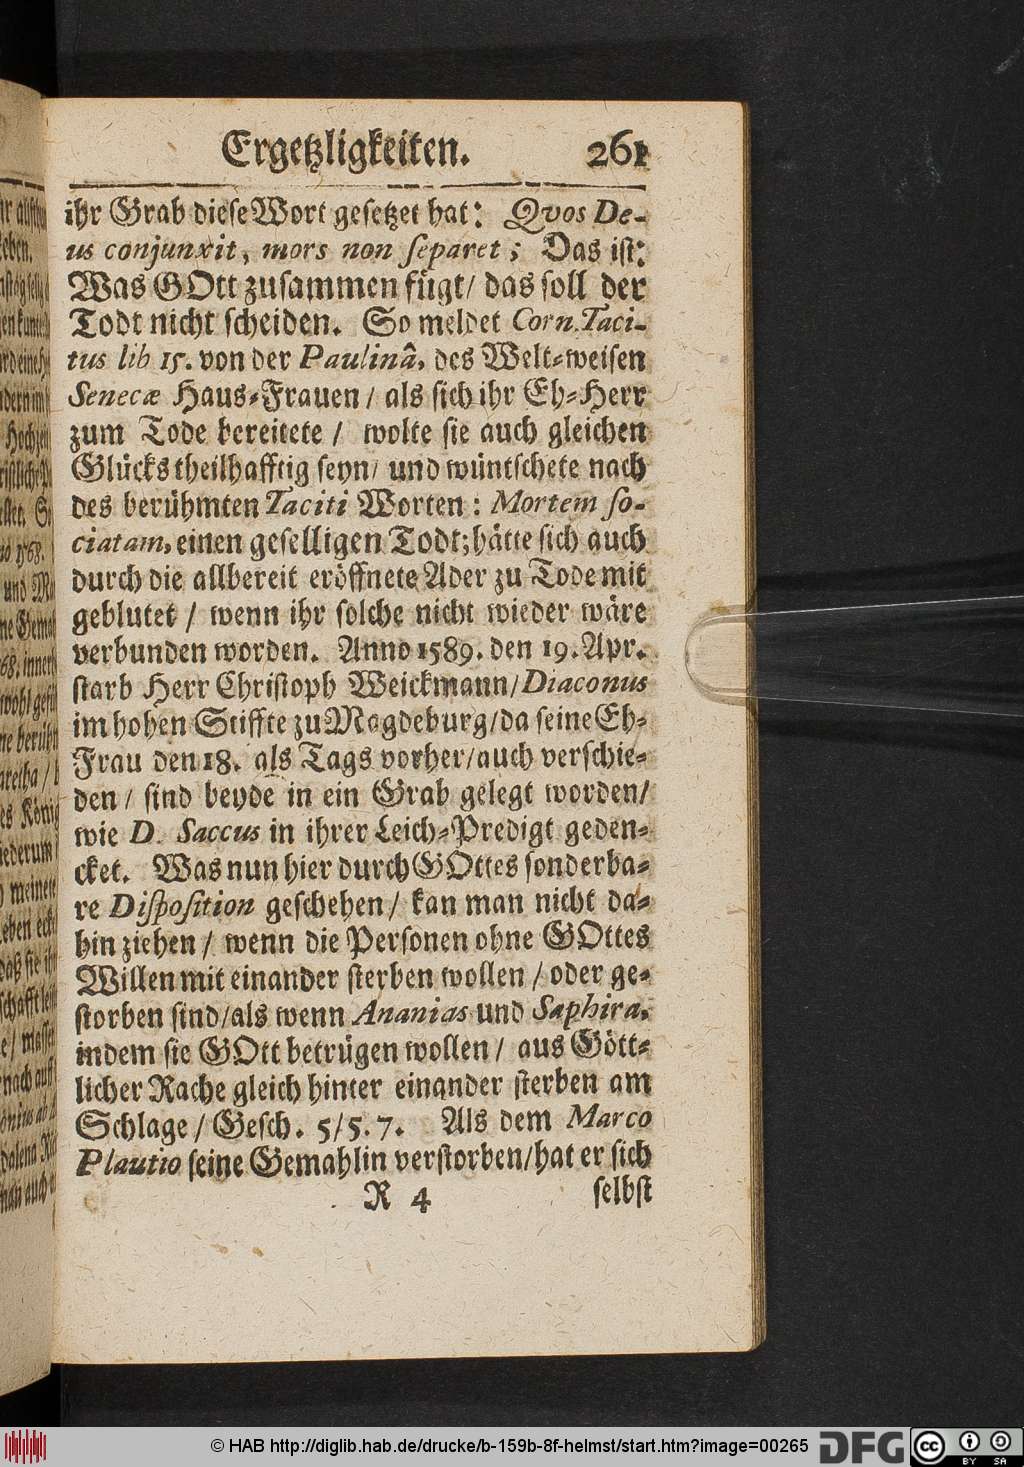 Ergetzligkeiten. 261
ihr Grab diese Wort gesetzet hat: Qvos De-
us conjunxit, mors non separet; Das ist:
Was GOtt zusammen fügt/ das soll der
Todt nicht scheiden. So meldet Corn. Taci-
tus lib 15. von der Paulinâ, des Welt-weisen
Senecæ Haus-Frauen / als sich ihr Eh-Herr
zum Tode bereitete / wolte sie auch gleichen
Glücks theilhafftig seyn/ und wüntschete nach
des berühmten Taciti Worten: Mortem so-
ciatam, einen geselligen Todt; hätte sich auch
durch die allbereit eröffnete Ader zu Tode mit
geblutet / wenn ihr solche nicht wieder wäre
verbunden worden. Anno 1589. den 19. Apr.
starb Herr Christoph Weickmann/ Diaconus
im hohen Stiffte zu Magdeburg/ da seine Eh-
Frau den 18. als Tags vorher/ auch verschie-
den / sind beyde in ein Grab gelegt worden/
wie D. Saccus in ihrer Leich-Predigt geden-
cket. Was nun hier durch GOttes sonderba-
re Disposition geschehen / kan man nicht da-
hin ziehen / wenn die Personen ohne GOttes
Willen mit einander sterben wollen / oder ge-
storben sind/ als wenn Ananias und Saphira,
indem sie GOtt betrügen wollen / aus Gött-
licher Rache gleich hinter einander sterben am
Schlage / Gesch. 5/ 5. 7. Als dem Marco
Plautio seine Gemahlin verstorben/ hat er sich
R 4 selbst
© HAB http://diglib.hab.de/drucke/b-159b-8f-helmst/start.htm?image=00265 DFG cc BY SA